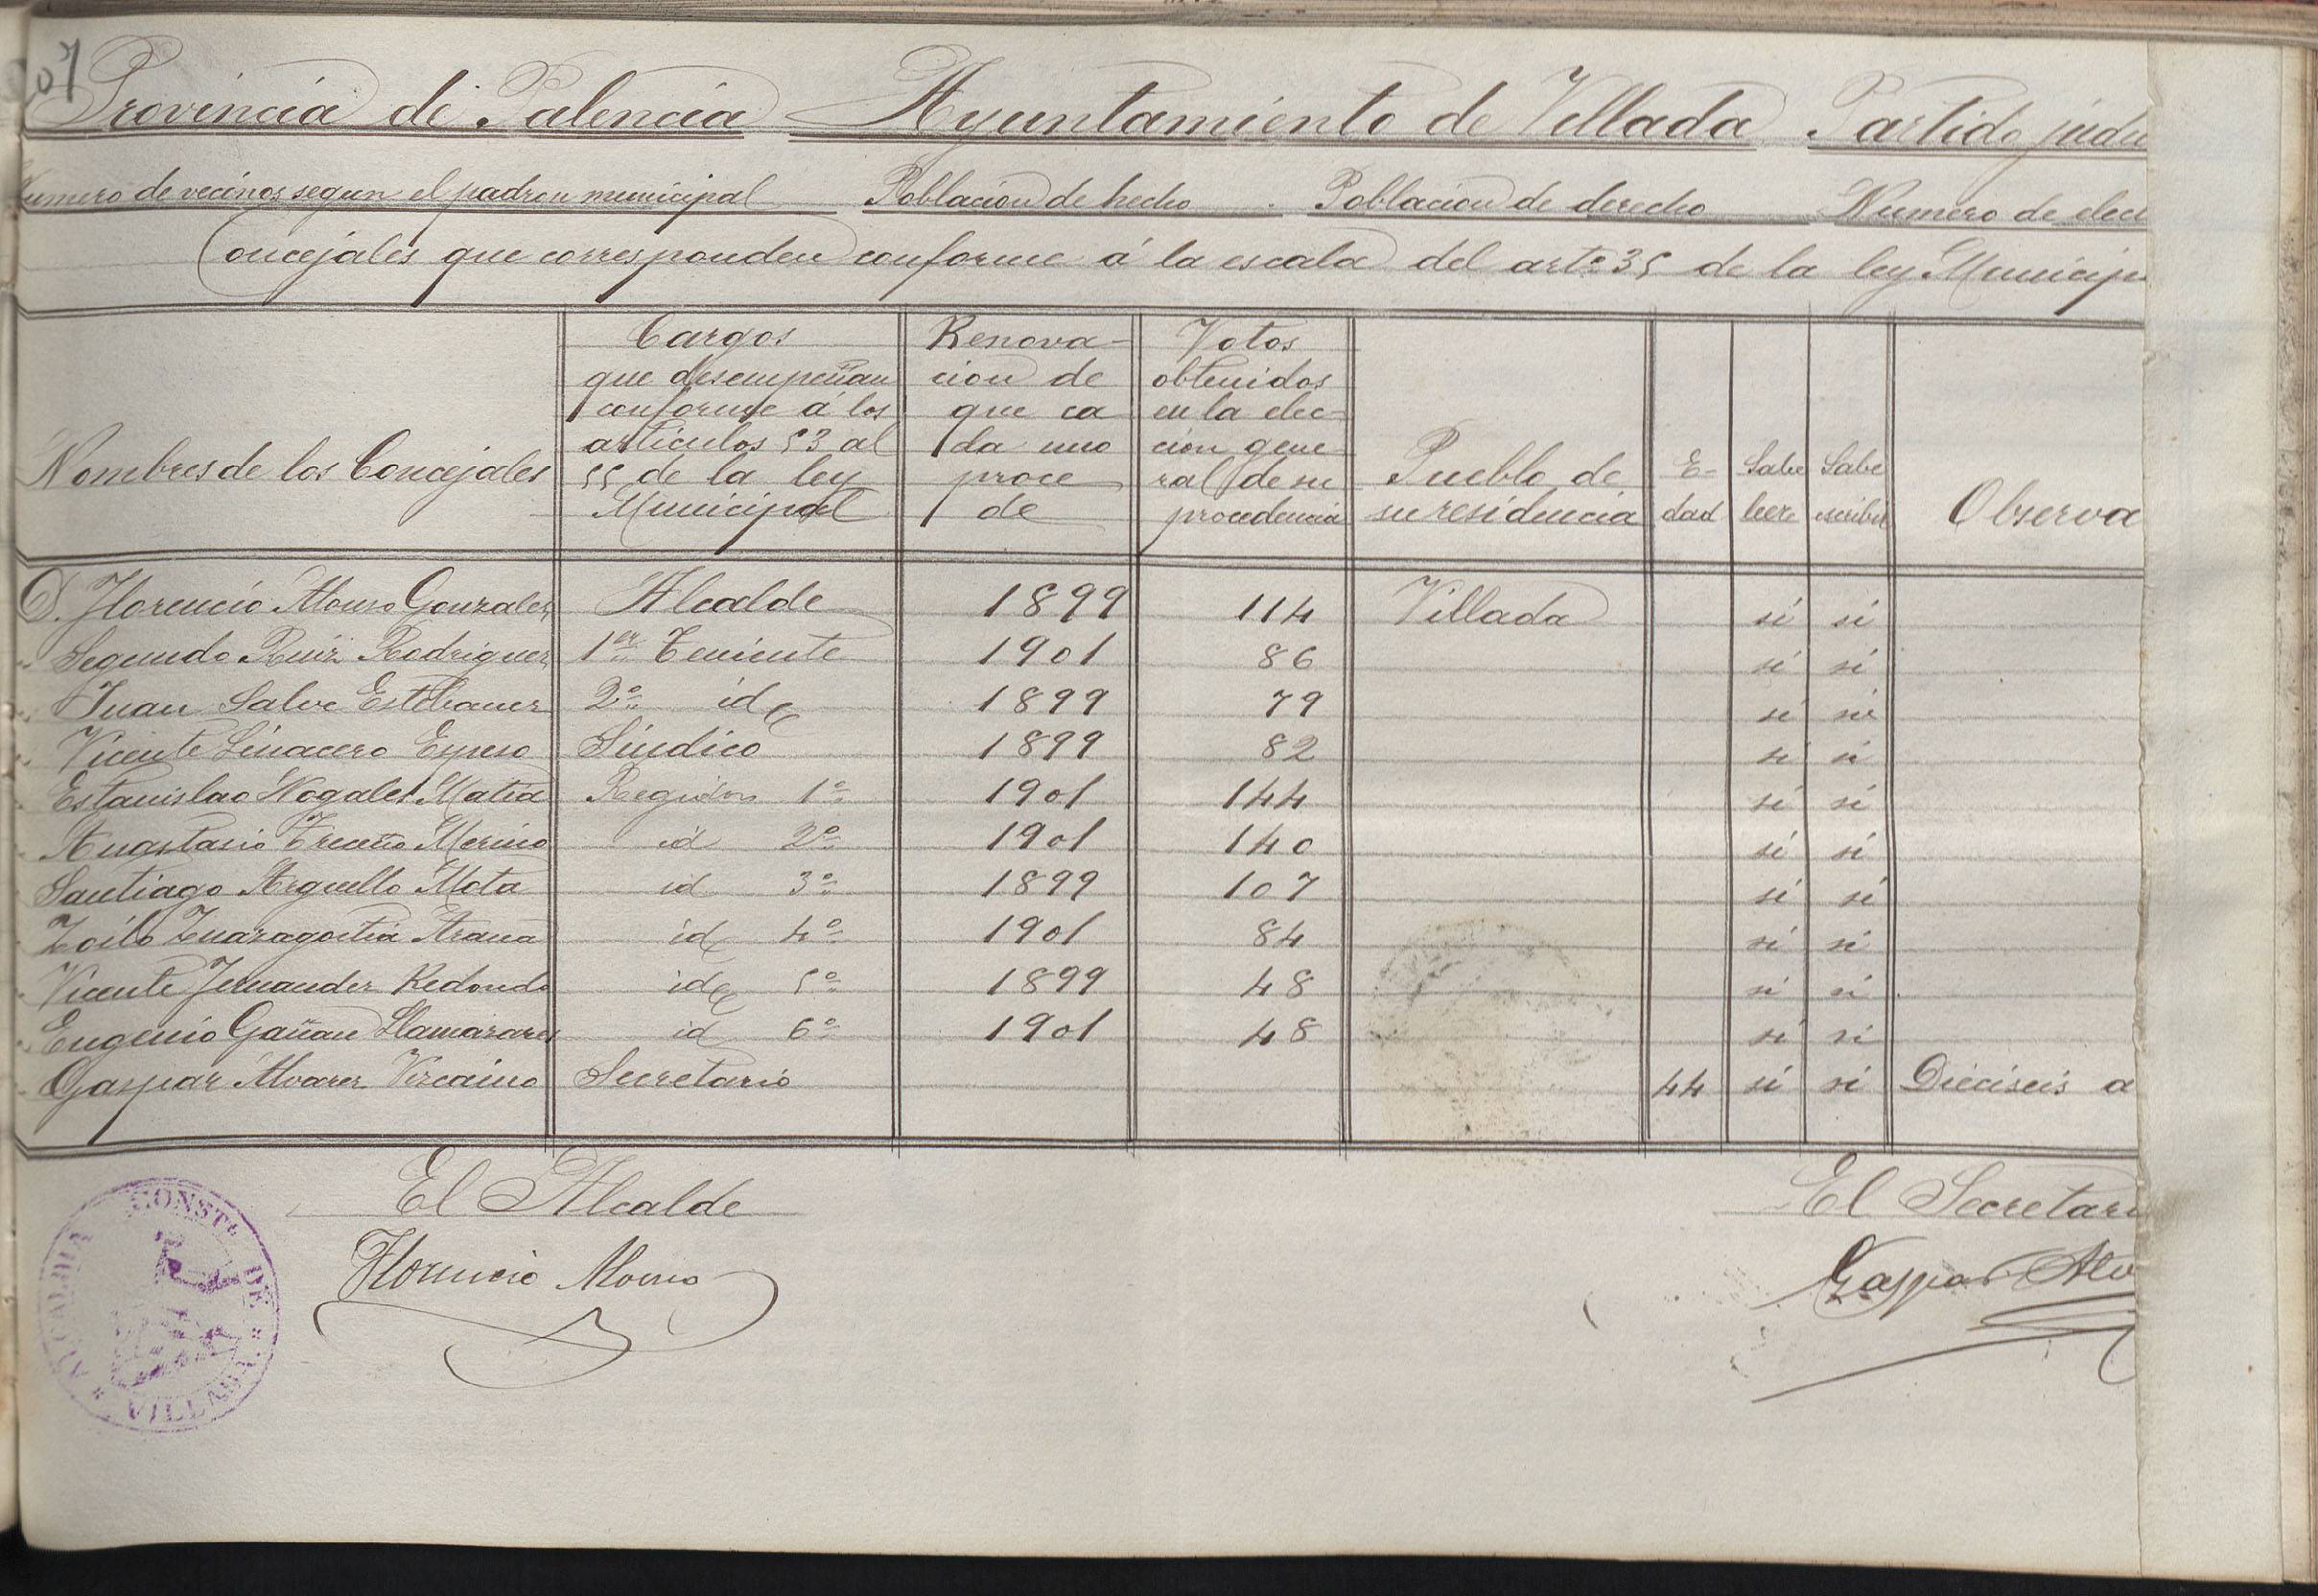 07
Provincia de Palencia Ayuntamiento de Villada Partido judi
Numero de vecinos segun el padron municipal Poblacion de hecho Poblacion de derecho Numero de elec
Concejales que corresponden conforme á la escala del arto 35 de la ley Municip
Nombres de los Concejales
Cargos
que desempeñan
conforme á los
articulos 53 al
55 de la ley
Municipal
Renova-
cion de
que ca
da uno
proce
de
Votos
obtenidos
en la elec-
cion gene
ral de su
procedencia
Pueblo de
su residencia
E-
dad
Sabe
leer
Sabe
escribir
Observa
D. Florencio Alonso Gonzalez Alcalde 1899 114 Villada si si
Segundo Ruiz Rodriguez 1er Teniente 1901 86 si si
Juan Salve Estebanez 2o id 1899 79 si si
Vicente Linacero Espeso Sindico 1899 82 si si
Estanislao Nogales Matia Regidor 1o 1901 144 si si
Anastasio Treceño Merino id 2o 1901 140 si si
Santiago Arguello Mota id 3o 1899 107 si si
Zoilo Zuazagoitia Arana id 4o 1901 84 si si
Vicente Fernandez Redondo id 5o 1899 48 si si
Eugenio Gañan Llamazares id 6o 1901 48 si si
Gaspar Alvarez Vizcaino Secretario 44 si si Dieciseis a
El Alcalde
El Secretari
Florencio Alonso
Gaspar Alv
ALCALDIA CONSTL DE VILLADA